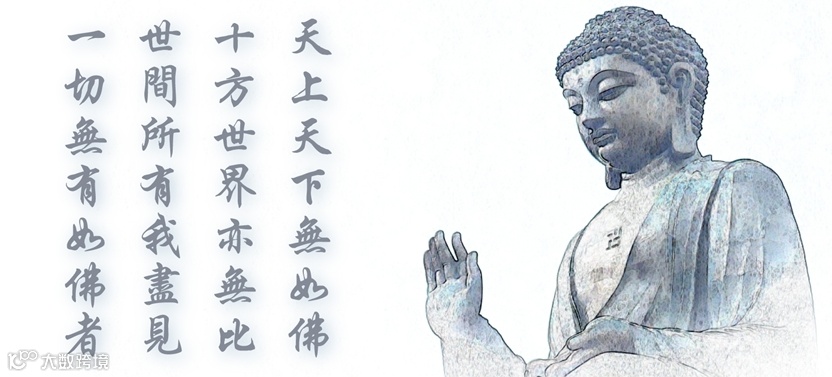 天上天下無如佛
十方世界亦無比
世間所有我盡見
一切無有如佛者
大数跨境